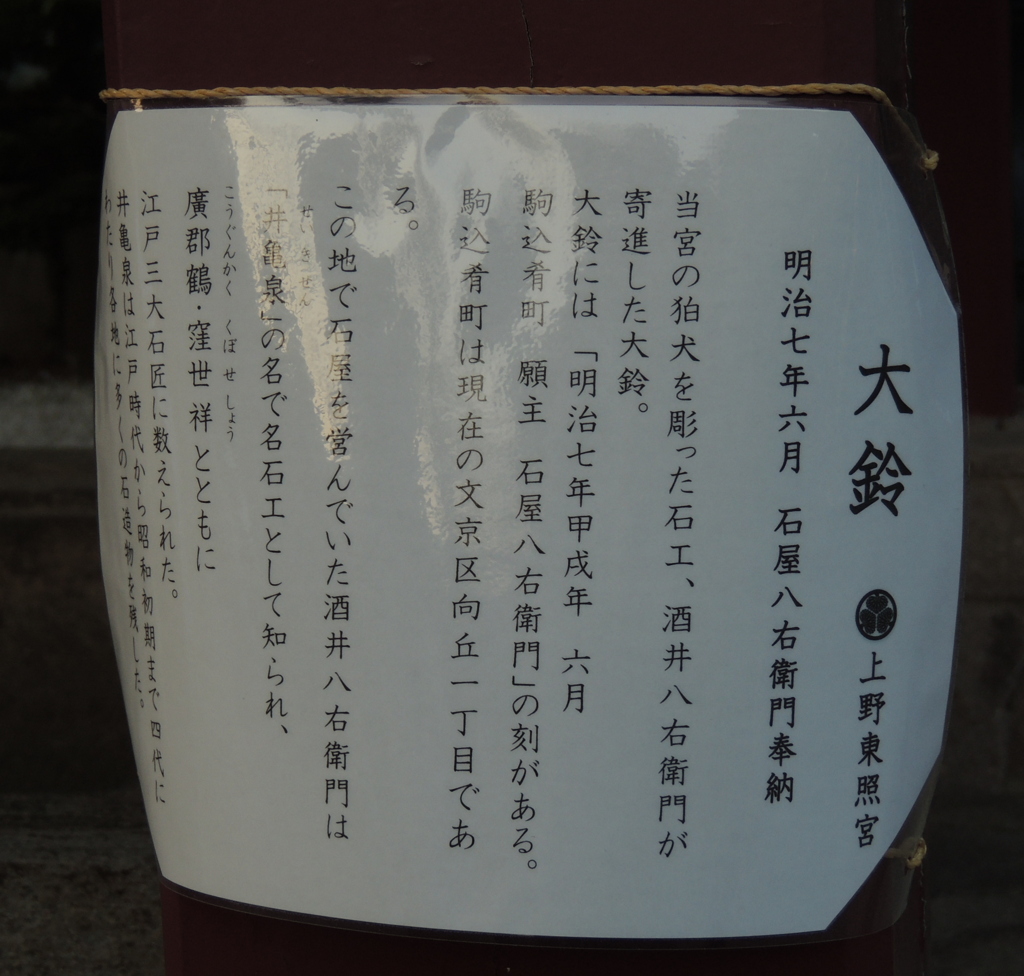 大鈴 上野東照宮
明治七年六月 石屋八右衛門奉納
当宮の狛犬を彫った石工、酒井八右衛門が
寄進した大鈴。
大鈴には「明治七年甲戌年 六月
駒込肴町 願主 石屋八右衛門」の刻がある。
駒込肴町は現在の文京区向丘一丁目であ
る。
この地で石屋を営んでいた酒井八右衛門は
せいきせん
「井亀泉」の名で名石工として知られ、
こうぐんかく くぼせしょう
廣郡鶴・窪世祥とともに
江戸三大石匠に数えられた。
井亀泉は江戸時代から昭和初期まで四代に
わたり各地に多くの石造物を残した。